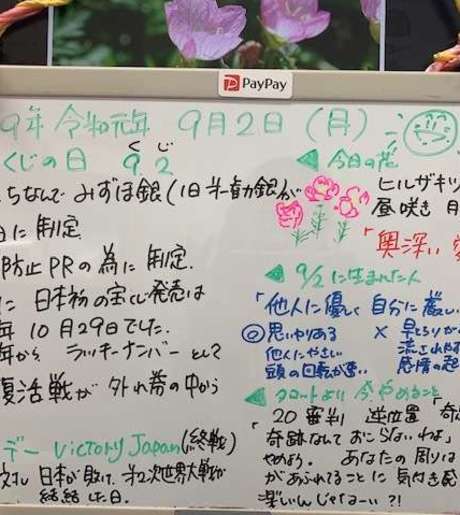 PayPay
9年 令和元年 9月2日 (月)
くじの日 9 2
くじ
ちなんで みずほ銀(旧 第一勧銀)が
日に 制定.
防止PRの為に 制定.
に 日本初の宝くじ発売は
年 10月29日でした.
年から ラッキーナンバー として
復活戦が 外れ券の中から
デー Victory Japan (終戦)
対し 日本が敗け、第2次世界大戦が
終結した日.
今日の花
ヒルザキツ
昼咲き 月
「奥深い
9/2に生まれた人
「他人に優しく 自分に厳しい
◎ 思いやりある
他人にやさしい
頭の回転が速い
×
流されやす
感情の起
タロットより 今、やめること
"20 審判 逆位置 「奇
奇跡なんて おこらないわよ」
やめよう. あなたの周りは
があふれてることに 気付き
楽しいんじゃなーい ?!